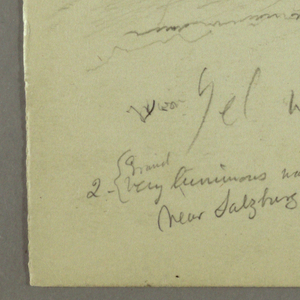 Yel
Grand
2 - { Very luminous
Near Salzburg